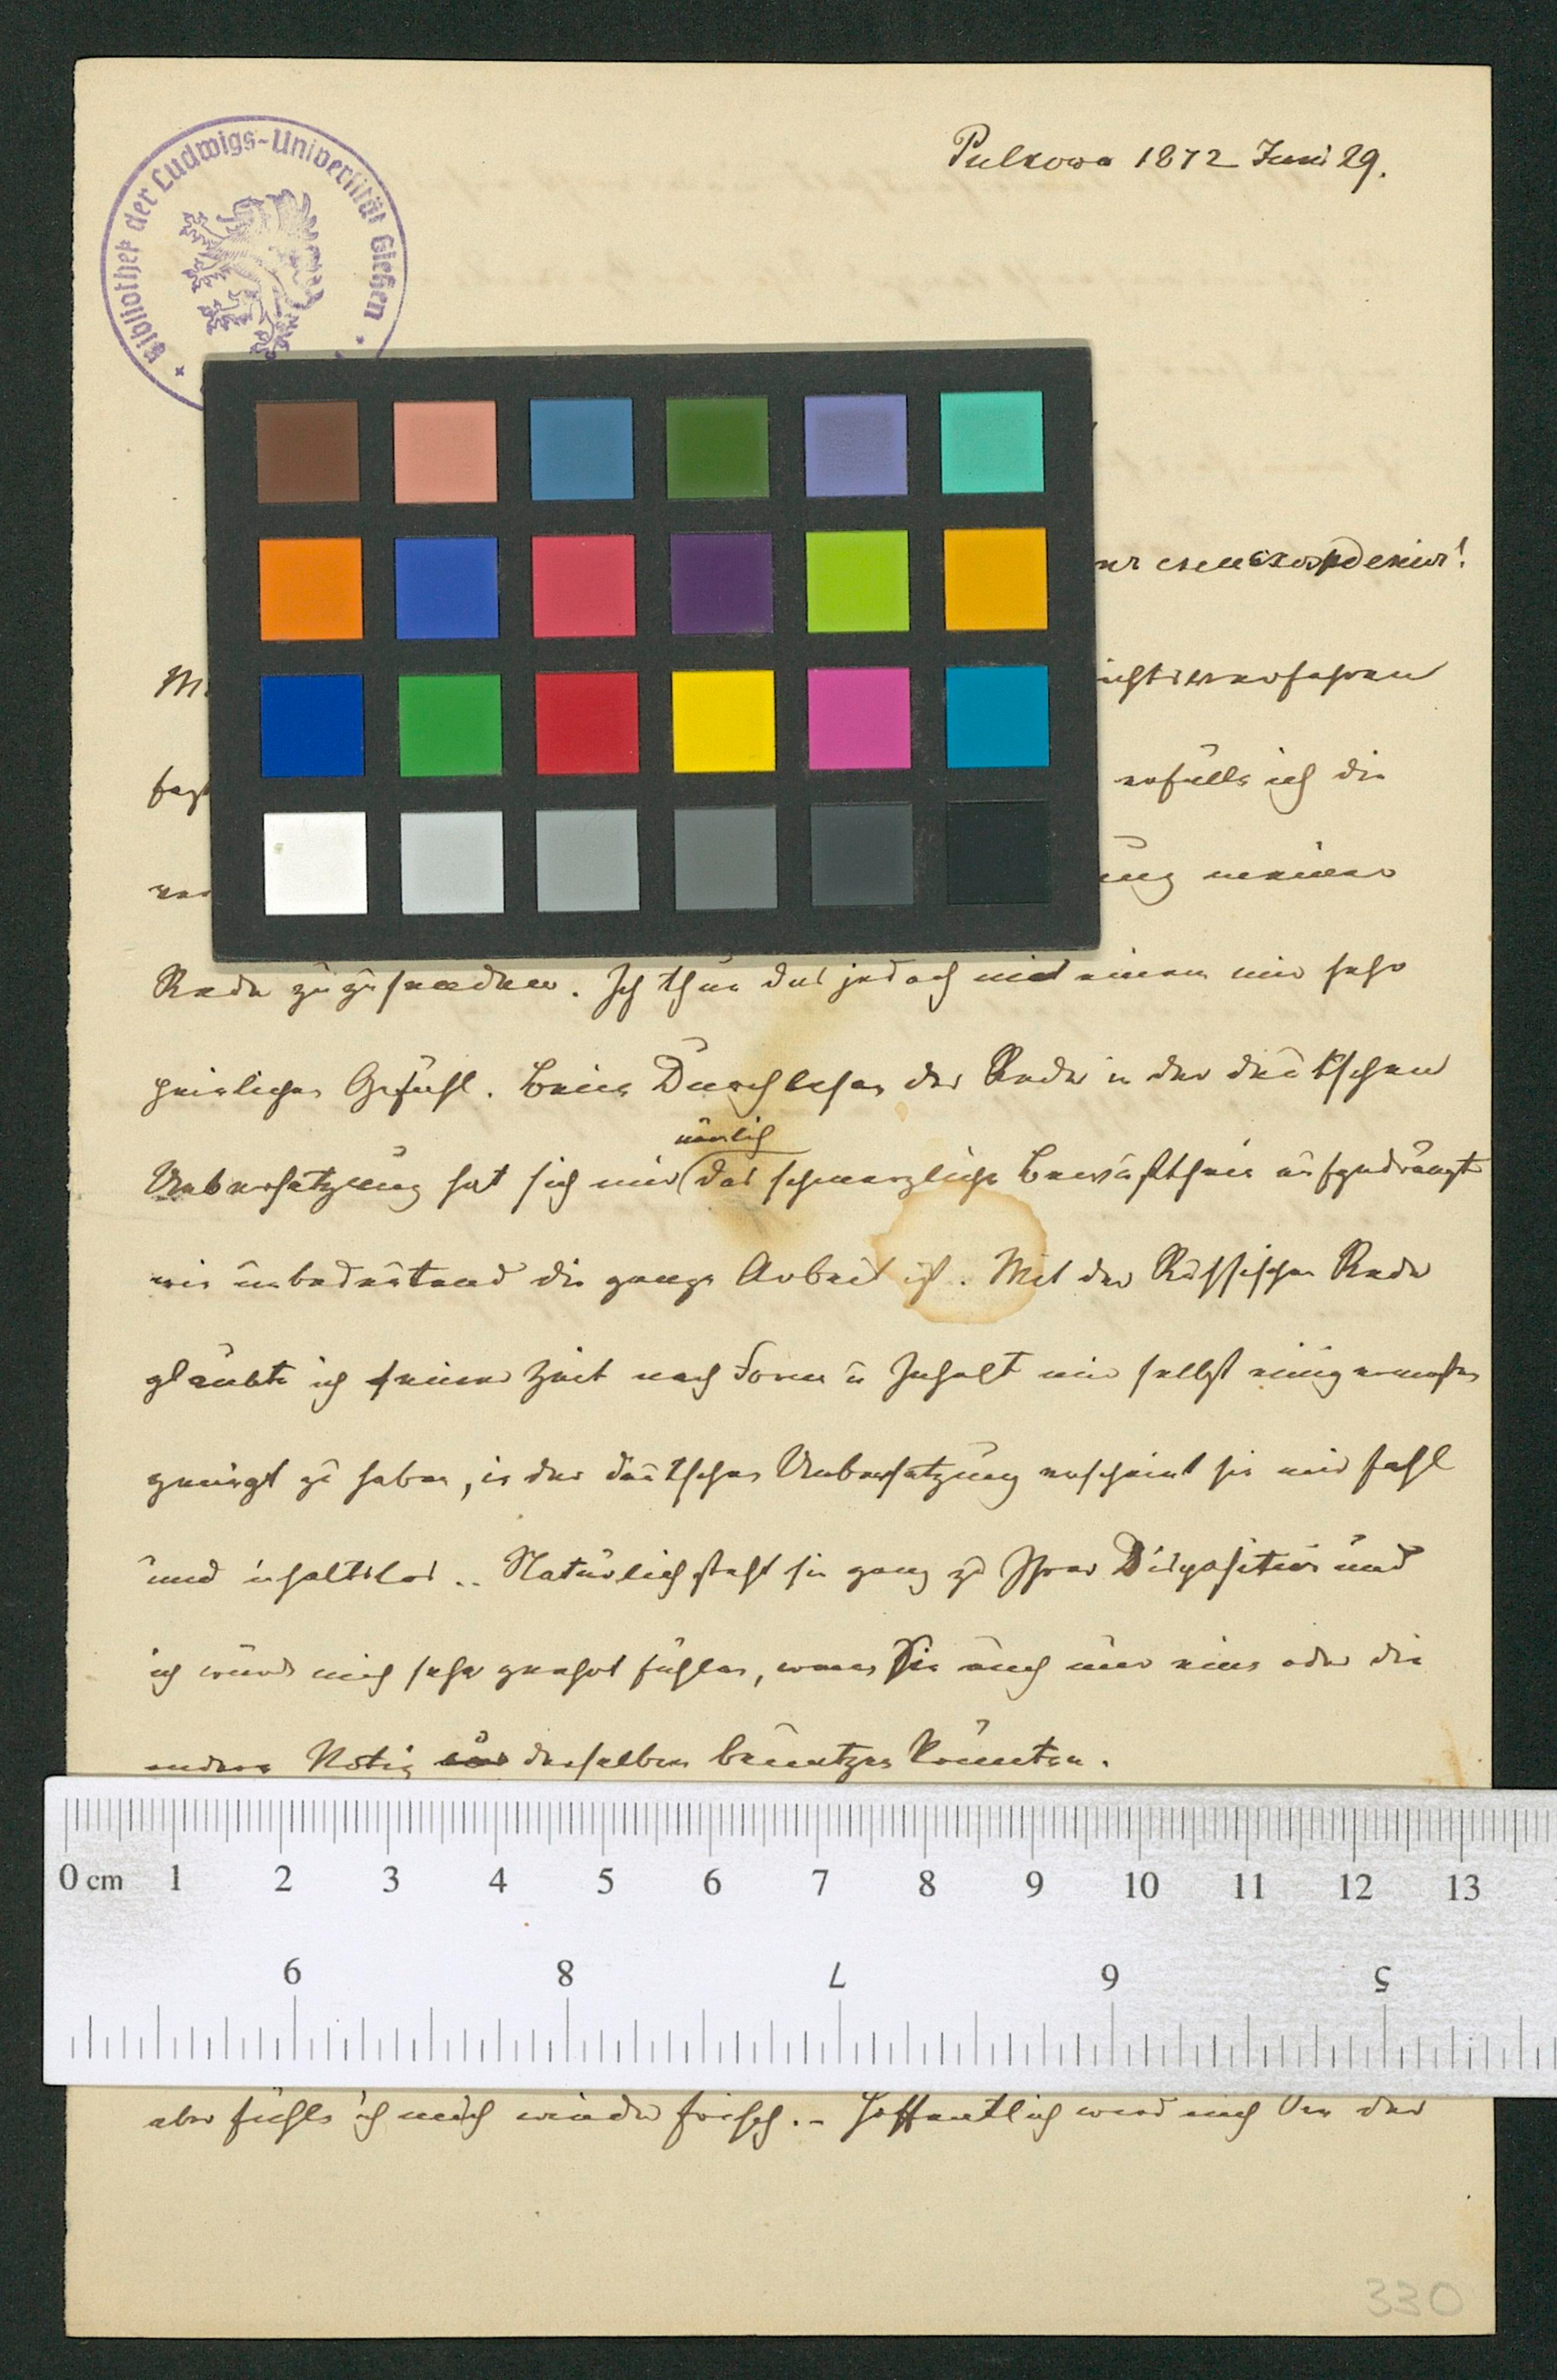 Bibliothek der Ludwigs-Universität Gießen
Pulkowa 1872 Juni 29.
erfülle ich die
ung meiner
Rede zuzusenden. Ich thue das jedoch mit einem mir sehr
peinlichen Gefühl. Beim Durchlesen der Rede in der deutschen
nämlich
Uebersetzung hat sich mir das schmerzliche Bewußtsein aufgedrängt
wie unbedeutend die ganze Arbeit ist. Mit der Russischen Rede
glaubte ich seiner Zeit nach Form u Inhalt mir selbst einigermaßen
genügt zu haben, in der deutschen Uebersetzung erscheint sie mir fahl
und inhaltslos .. Natürlich steht sie ganz zu Ihrer Disposition und
ich würde mich sehr geehrt fühlen, wenn Sie auch nur eine oder die
andere Notiz derselben benutzen könnten.
0 cm 1 2 3 4 5 6 7 8 9 10 11 12 13
9 8 7 6 5
aber fühle ich mich wieder frisch. – Hoffentlich wird mich der
330